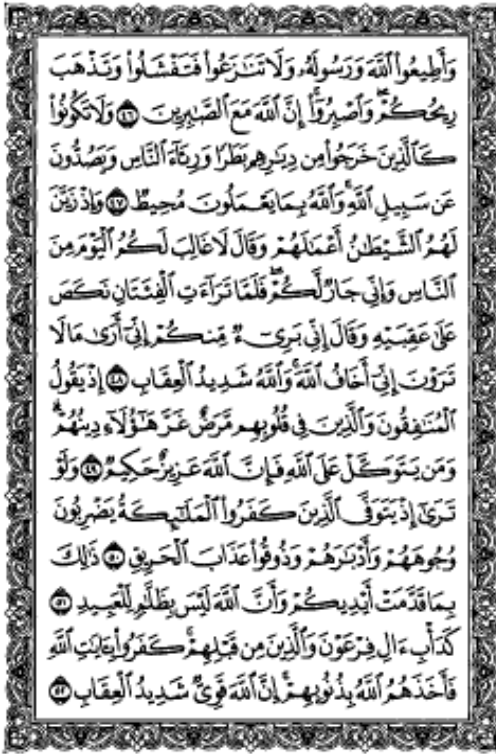 وَأَطِيعُوا۟ ٱللَّهَ وَرَسُولَهُۥ وَلَا تَنَـٰزَعُوا۟ فَتَفْشَلُوا۟ وَتَذْهَبَ
رِيحُكُمْ ۖ وَٱصْبِرُوٓا۟ ۚ إِنَّ ٱللَّهَ مَعَ ٱلصَّـٰبِرِينَ ٤٦ وَلَا تَكُونُوا۟
كَٱلَّذِينَ خَرَجُوا۟ مِن دِيَـٰرِهِم بَطَرًا وَرِئَآءَ ٱلنَّاسِ وَيَصُدُّونَ
عَن سَبِيلِ ٱللَّهِ ۚ وَٱللَّهُ بِمَا يَعْمَلُونَ مُحِيطٌ ٤٧ وَإِذْ زَيَّنَ
لَهُمُ ٱلشَّيْطَـٰنُ أَعْمَـٰلَهُمْ وَقَالَ لَا غَالِبَ لَكُمُ ٱلْيَوْمَ مِنَ
ٱلنَّاسِ وَإِنِّى جَارٌ لَّكُمْ ۖ فَلَمَّا تَرَآءَتِ ٱلْفِئَتَانِ نَكَصَ
عَلَىٰ عَقِبَيْهِ وَقَالَ إِنِّى بَرِىٓءٌ مِّنكُمْ إِنِّىٓ أَرَىٰ مَا لَا
تَرَوْنَ إِنِّىٓ أَخَافُ ٱللَّهَ ۚ وَٱللَّهُ شَدِيدُ ٱلْعِقَابِ ٤٨ إِذْ يَقُولُ
ٱلْمُنَـٰفِقُونَ وَٱلَّذِينَ فِى قُلُوبِهِم مَّرَضٌ غَرَّ هَـٰٓؤُلَآءِ دِينُهُمْ ۗ
وَمَن يَتَوَكَّلْ عَلَى ٱللَّهِ فَإِنَّ ٱللَّهَ عَزِيزٌ حَكِيمٌ ٤٩ وَلَوْ
تَرَىٰٓ إِذْ يَتَوَفَّى ٱلَّذِينَ كَفَرُوا۟ ۙ ٱلْمَلَـٰٓئِكَةُ يَضْرِبُونَ
وُجُوهَهُمْ وَأَدْبَـٰرَهُمْ وَذُوقُوا۟ عَذَابَ ٱلْحَرِيقِ ٥٠ ذَٰلِكَ
بِمَا قَدَّمَتْ أَيْدِيكُمْ وَأَنَّ ٱللَّهَ لَيْسَ بِظَلَّـٰمٍ لِّلْعَبِيدِ ٥١
كَدَأْبِ ءَالِ فِرْعَوْنَ ۙ وَٱلَّذِينَ مِن قَبْلِهِمْ ۚ كَفَرُوا۟ بِـَٔايَـٰتِ ٱللَّهِ
فَأَخَذَهُمُ ٱللَّهُ بِذُنُوبِهِمْ ۗ إِنَّ ٱللَّهَ قَوِىٌّ شَدِيدُ ٱلْعِقَابِ ٥٢